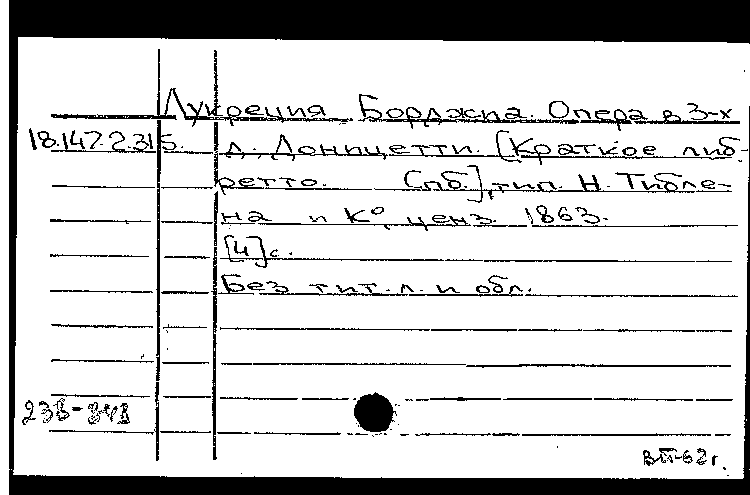 Лукреция Борджиа. Опера в 3-х
18.147.2.315. д. Доницетти. [Краткое либ-
ретто. Спб.], тип. Н. Тибле-
на и К°, ценз. 1863.
[4] с.
Без тит. л. и обл.
238-343